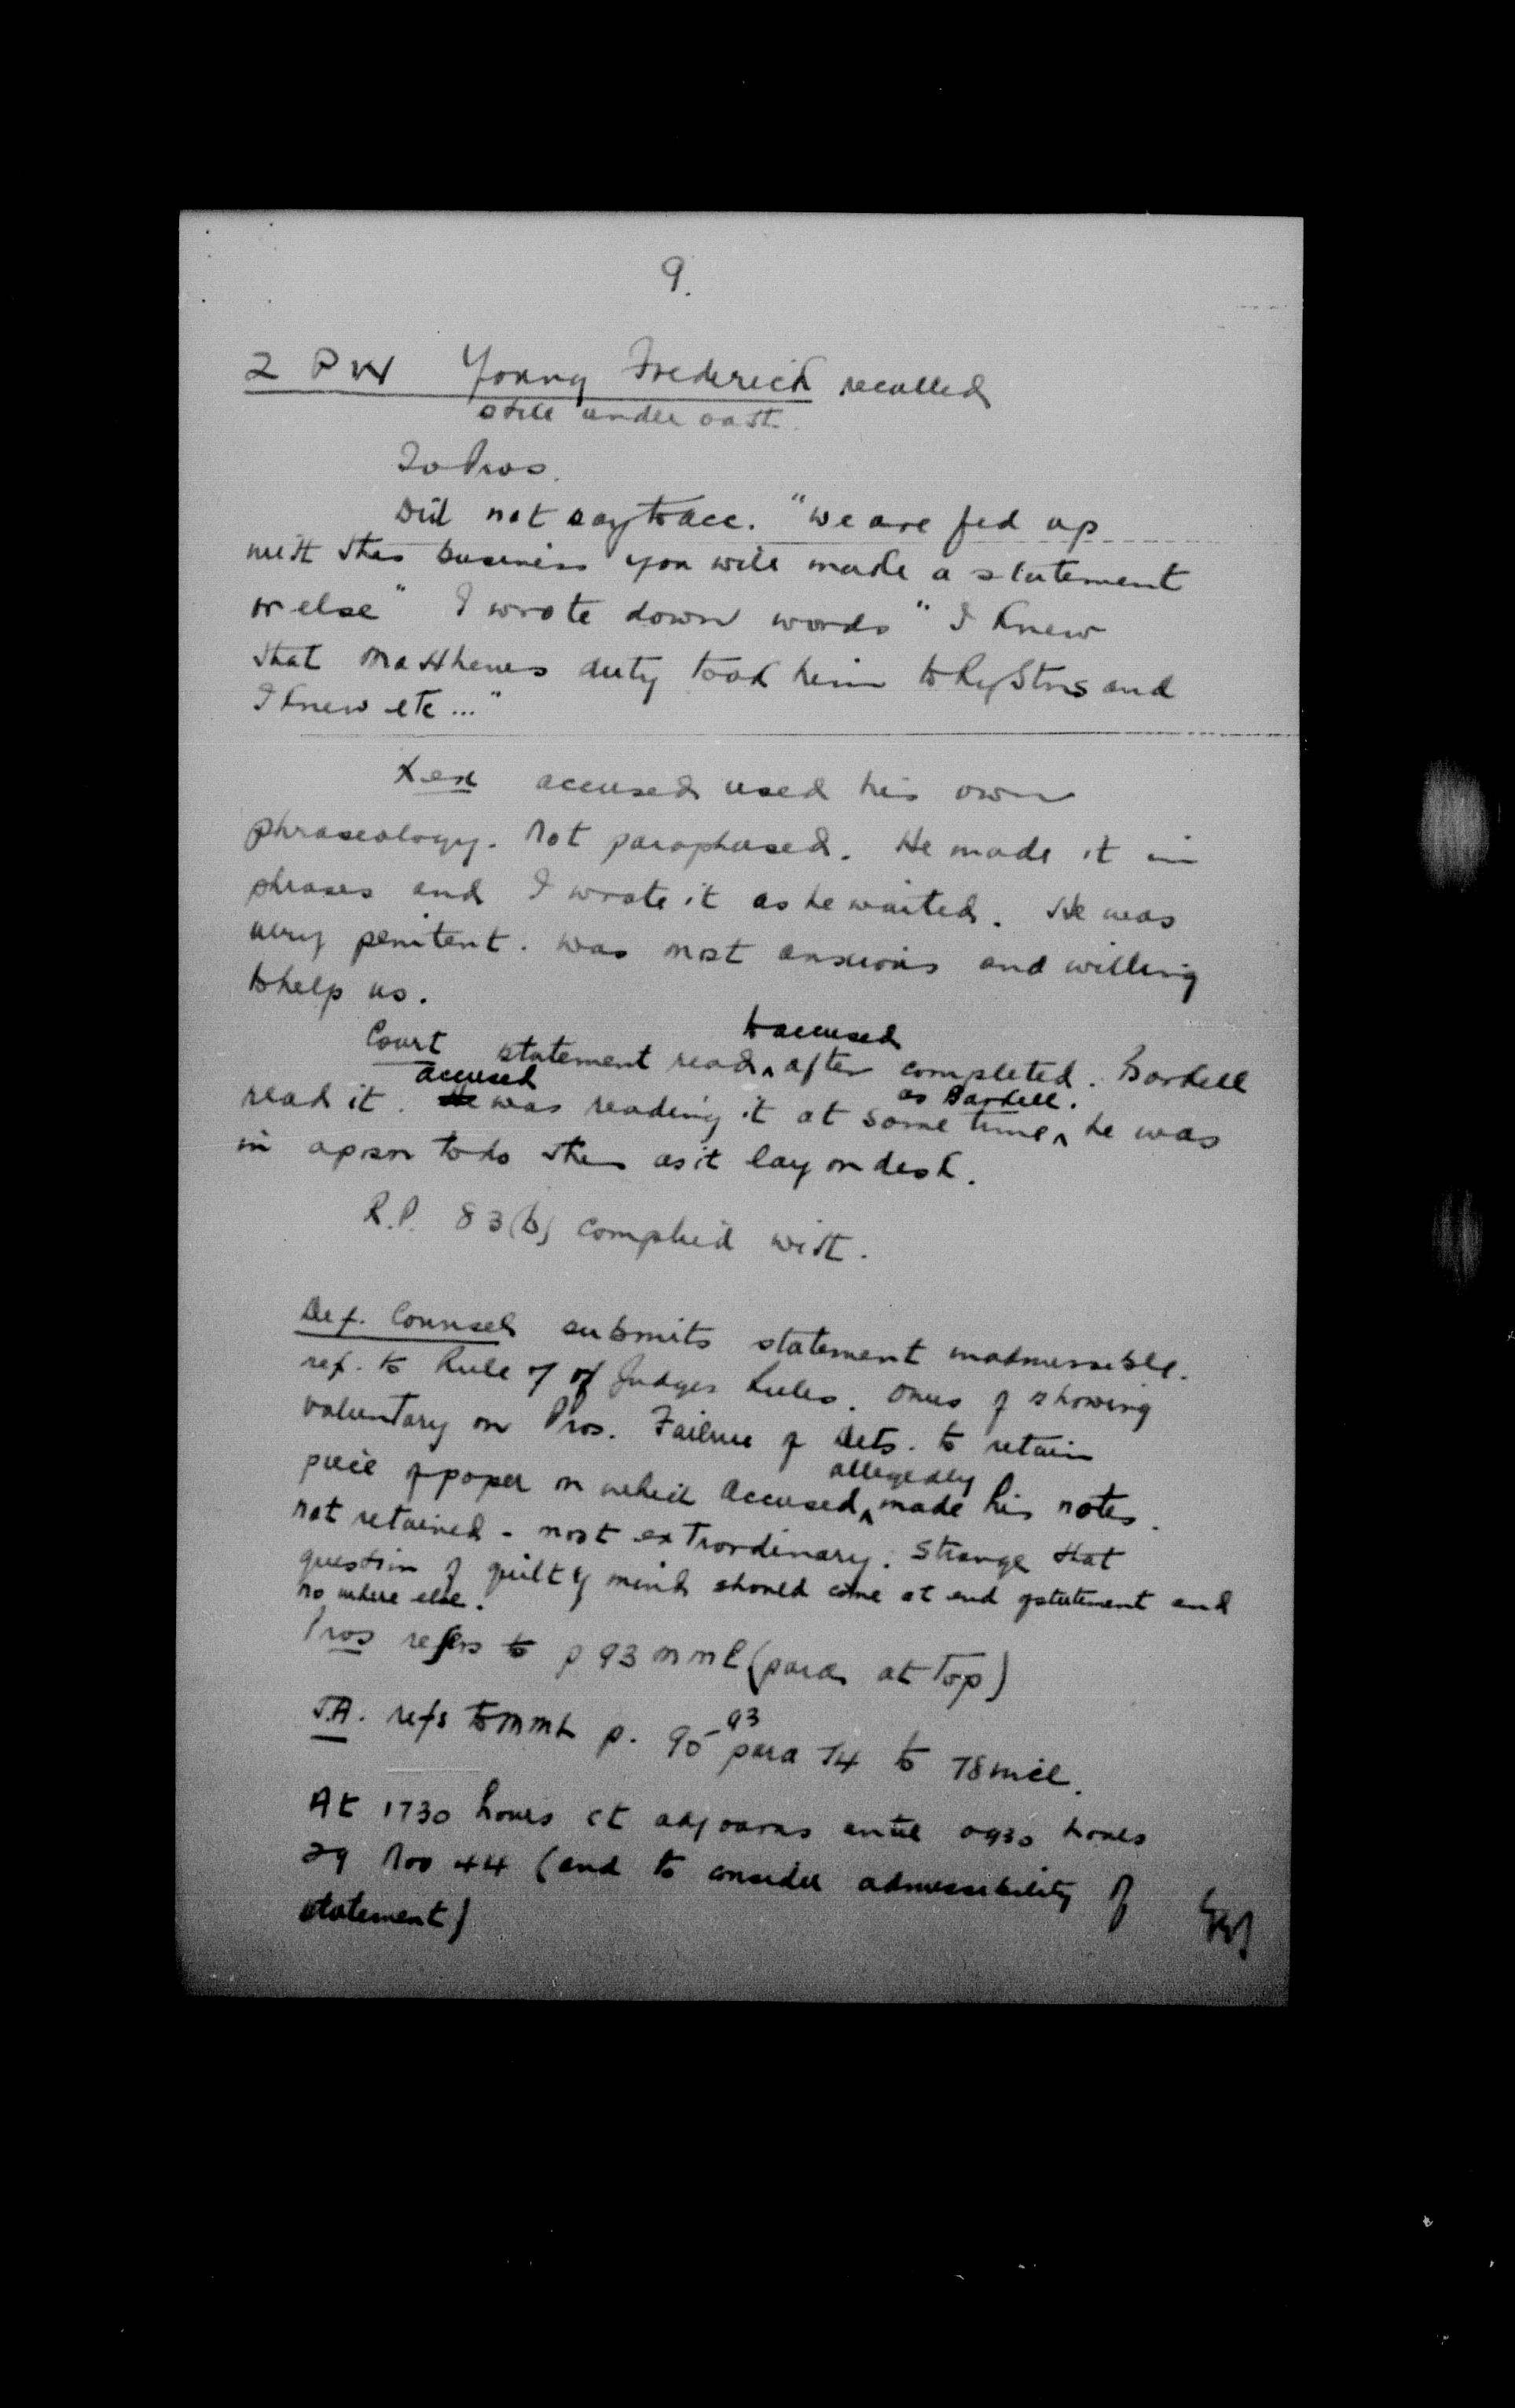 9.
2 PW Young Frederick recalled
still under oath.
To Pros.
Did not say to acc. "we are fed up
with this business you will made a statement
or else" I wrote down words "I knew
that Matthews duty took him to Ry Stns and
I knew etc ..."
Xex accused used his own
phraseology. Not paraphased. He made it in
phrases and I wrote it as he waited. He was
very penitent. was most anxious and willing
to help us.
to accused
Court statement read ^ after completed. Bardell
accused as Bardell.
read it. He was reading it at same time ^ he was
in a posn to do this as it lay on desk.
R.P. 83(b) complied with.
Def. Counsel submits statement inadmissible.
ref. to Rule 7 of Judges Rules. Onus of showing
voluntary on Pros. Failure of Dets. to retain
allegedly
piece of paper on which accused ^ made his notes.
not retained - most extrordinary. Strange that
question of guilty mind should come at end of statement and
no where else.
Pros refers to p 93 MML (para at top)
93
J.A. refs to MML p. 95 para 74 to 78 incl.
At 1730 hours ct adjourns until 0930 hours
29 Nov 44 (and to consider admissibility of
statement)